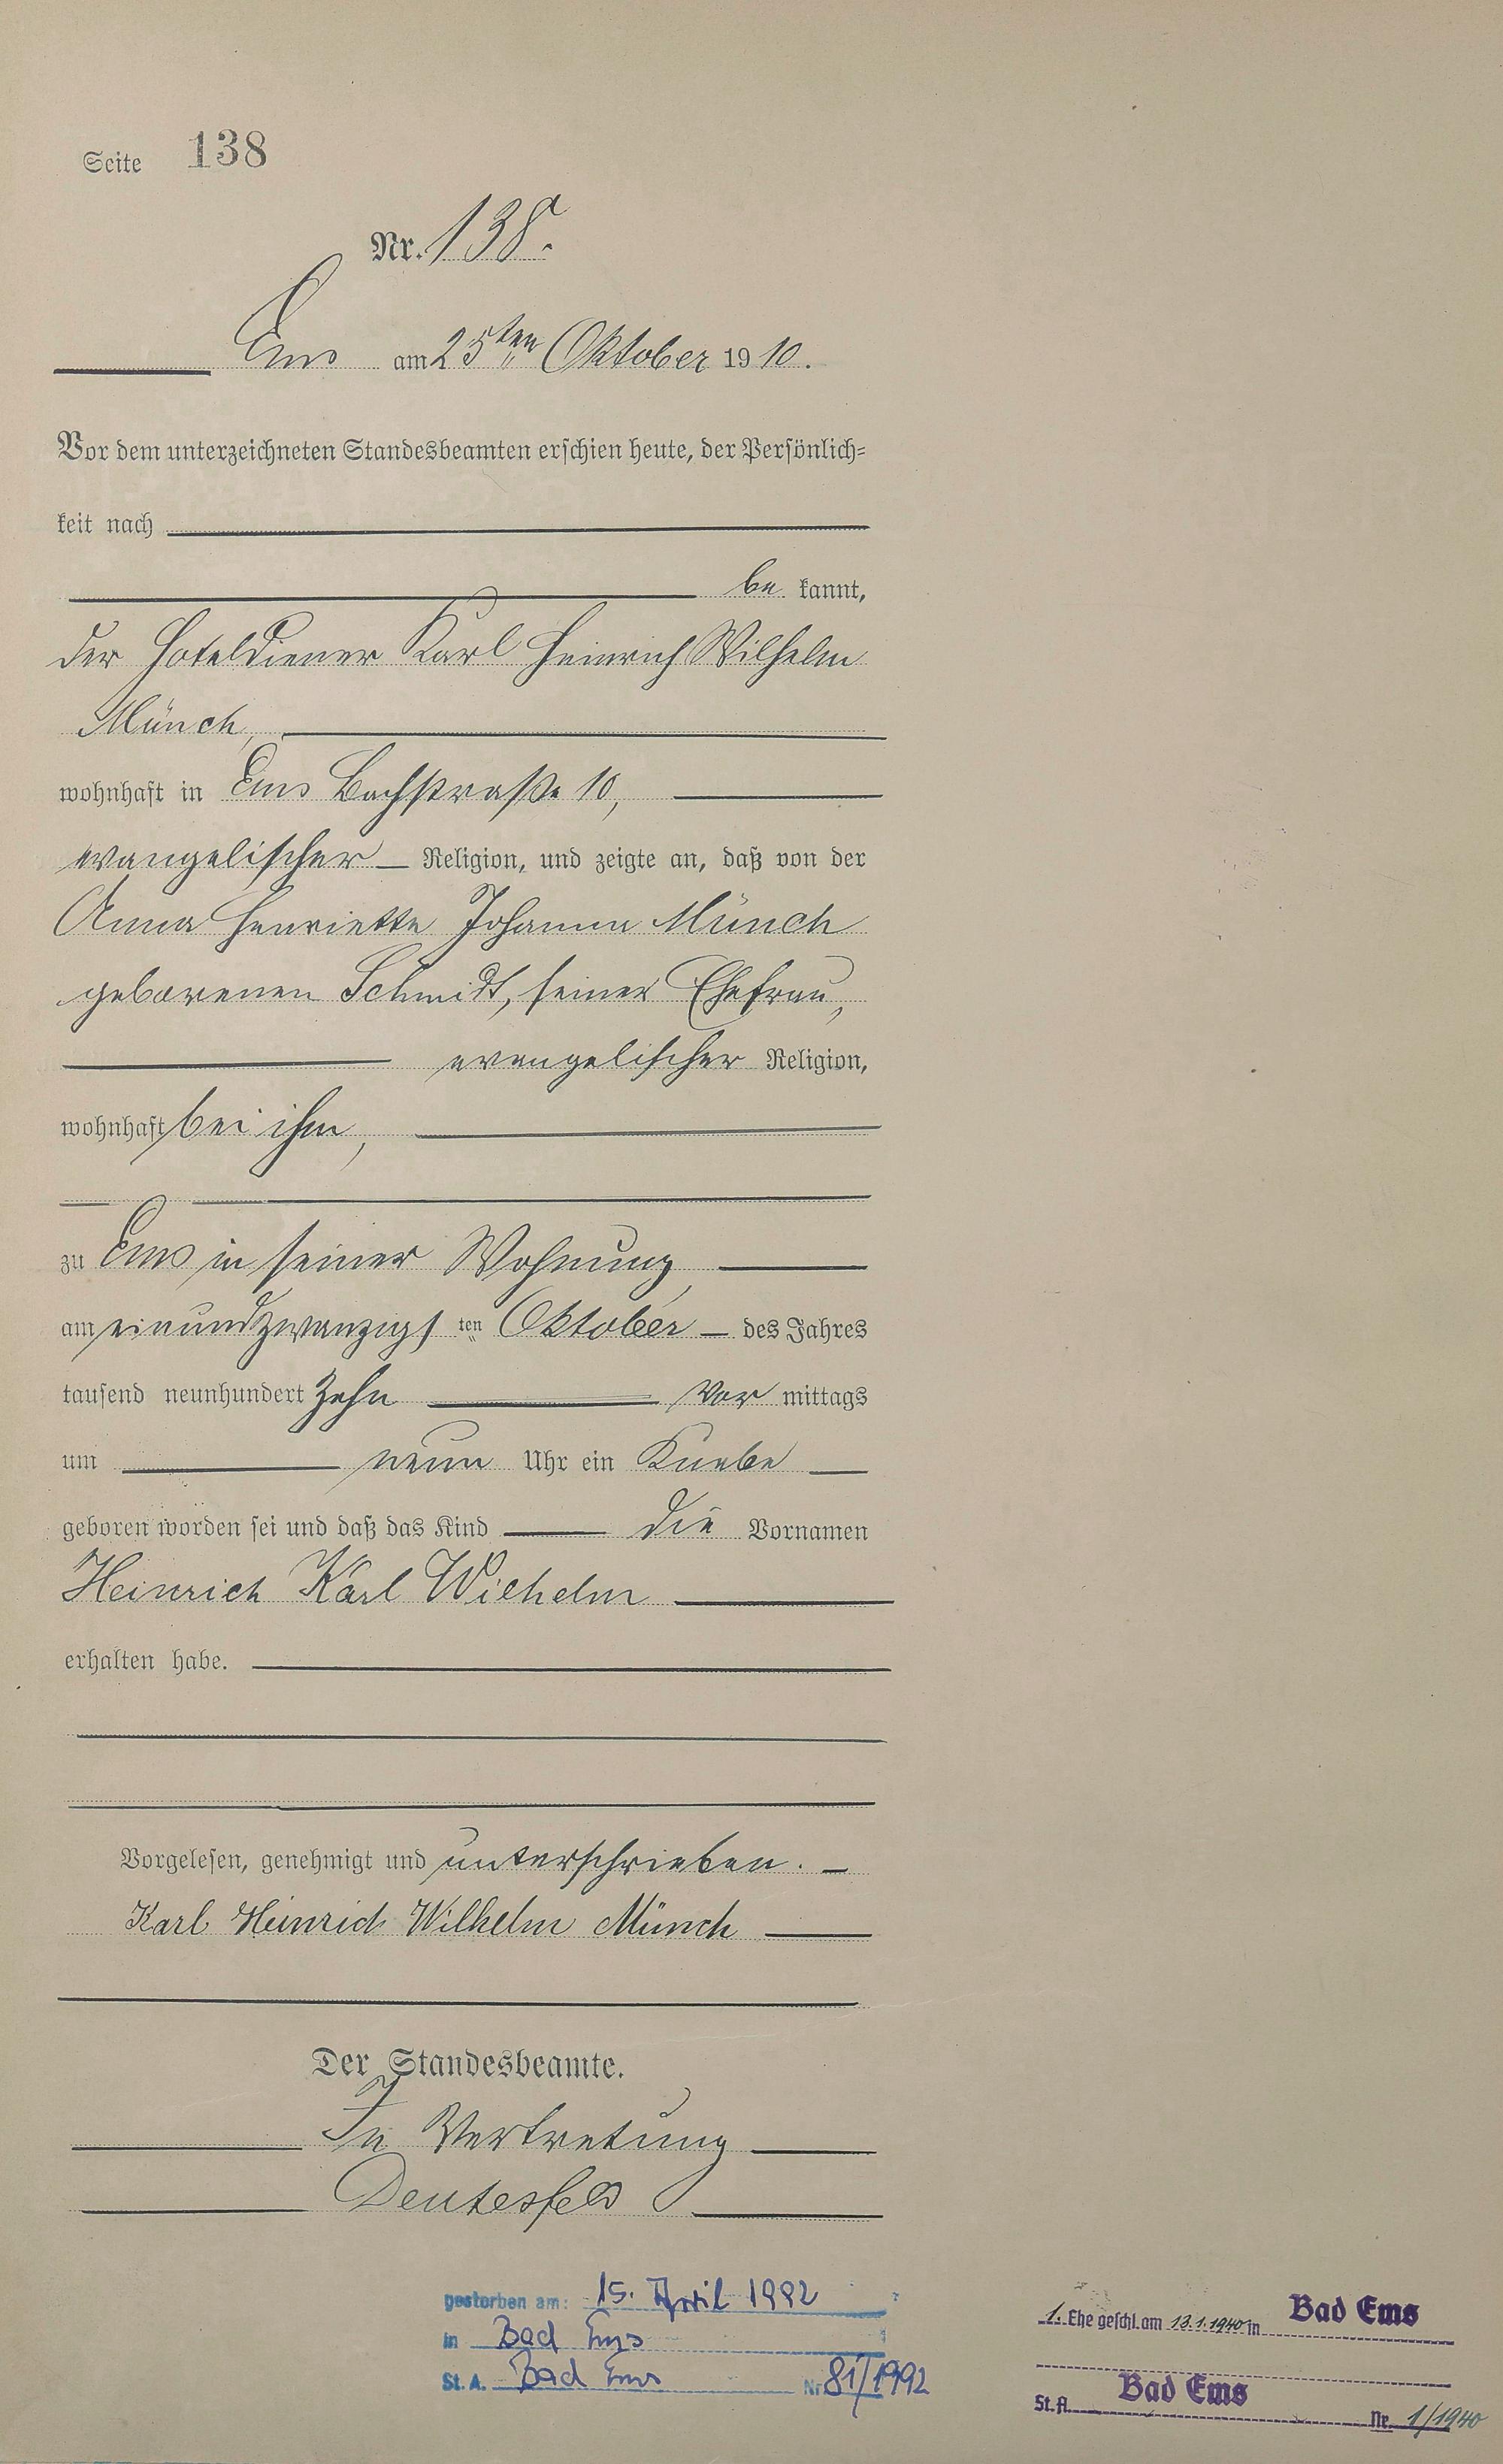 Seite 138
Nr. 138.
Ems am 25ten Oktober 1910.
Vor dem unterzeichneten Standesbeamten erschien heute, der Persönlich-
keit nach
be kannt,
der Hoteldiener Karl Heinrich Wilhelm
Münch,
wohnhaft in Ems Bachstraße 10,
evangelischer Religion, und zeigte an, daß von der
Anna Henriette Johanna Münch
geborenen Schmidt, seiner Ehefrau,
evangelischer Religion,
wohnhaft bei ihm,
zu Ems in seiner Wohnung
am einundzwanzigsten Oktober des Jahres
tausend neunhundert zehn Vor mittags
um neun Uhr ein Knabe
geboren worden sei und daß das Kind die Vornamen
Heinrich Karl Wilhelm
erhalten habe.
Vorgelesen, genehmigt und unterschrieben.
Karl Heinrich Wilhelm Münch
Der Standesbeamte.
In Vertretung
Deutesfeld
gestorben am: 15. April 1992
in Bad Ems
St. A. Bad Ems Nr 81/1992
1. Ehe geschl. am 13.1.1940 in Bad Ems
St.A. Bad Ems Nr. 1/1940